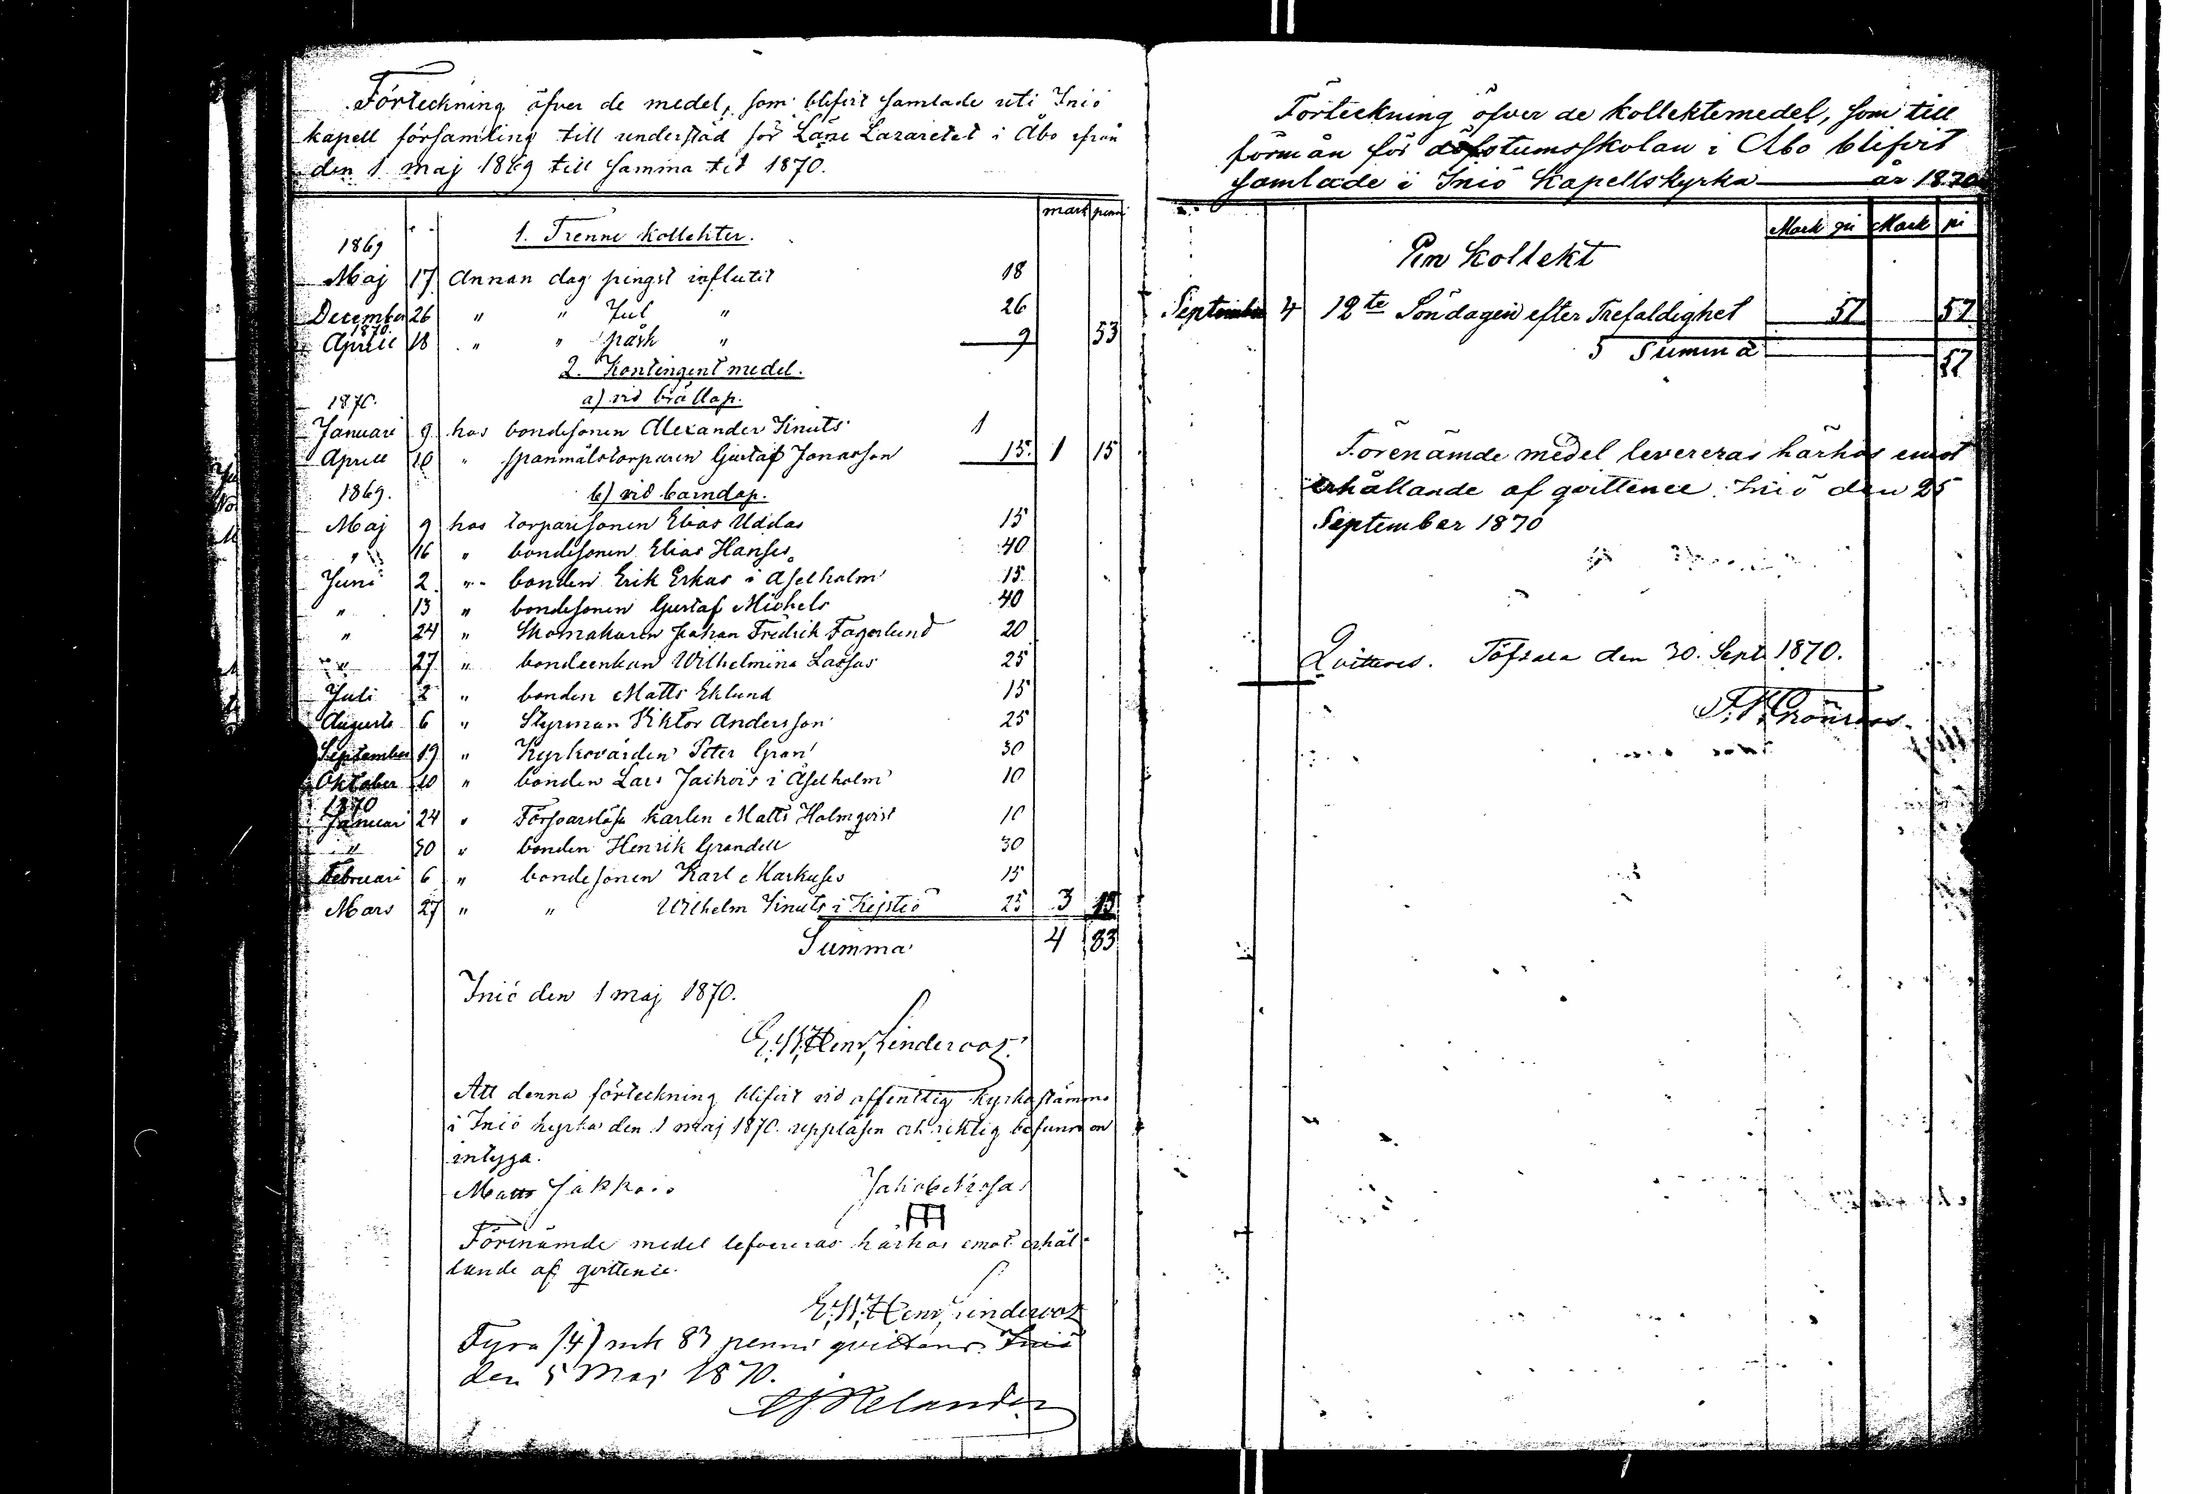 Förteckning öfver de medel, som blifvit samlade uti Iniö
kapell församling till understöd för Läne Lazaretet i Åbo ifrån
den 1 maj 1869 till samma tid 1870.
mark penni
1. Trenne kollekter.
1869
Maj 17 Annan dag pingst influtit 18
December 26 " " Jul " 26
1870.
Aprill 18 " " påsk " 9 53
2. Kontingent medel.
a) vid bröllop.
1870.
Januari 9 hos bondesonen Alexander Sinuts 1
Aprill 10 " spanmålstorparen Gustaf Jonasson 15 1 15
1869. b) vid barndop.
Maj 9 hos torparesonen Elias Uddas 15
" 16 " bondesonen Elias Hanses 40
Juni 2 " bonden Erik Erkas i Åselholm 15
" 13 " bondesonen Gustaf Michels 40
" 24 " Skomakaren Johan Fredrik Fagerlund 20
" 27 " bondeenkan Wilhelmina Lassas 25
Juli 2 " bonden Matts Eklund 15
Augusti 6 " Styrman Viktor Andersson 25
September 19 " Kyrkovärden Peter Gran 30
Oktober 10 " bonden Lars Jaikois i Åselholm 10
1870
Januari 24 " Försvarslöse karlen Matts Holmqvist 10
" 30 " bonden Henrik Grandell 30
Februari 6 " bondesonen Karl Markuses 15
Mars 27 " " Wilhelm Sinuts i Keistiö 25 3 15
Summa 4 83
Iniö den 1 maj 1870.
E. W. Henr. Linderoos.
Att denna förteckning blifvit vid offentlig kyrkostämma
i Iniö kyrka den 1 maj 1870 uppläsen och riktig befunnen
intyga.
Matts Jakkois Jakob
Förenämde medel lefvereras härhos emot erhål-
lande af qvittence.
E. W. Henr. Linderoos
Fyra (4) mk 83 penni qvitteras. Iniö
den 5 Maj 1870.
Helander
Förteckning öfver de kollektemedel, som till
förmån för döfstumsskolan i Åbo blifvit
samlade i Iniö Kapellskyrka år 1870
Mark pi Mark pi
En Kollekt
September 4 12te Söndagen efter Trefaldighet 57 57
Summa 57
Förenämde medel levereras härhos emot
erhållande af qvittence. Iniö den 25
September 1870
Qvitteras. Töfsala den 30. Sept. 1870.